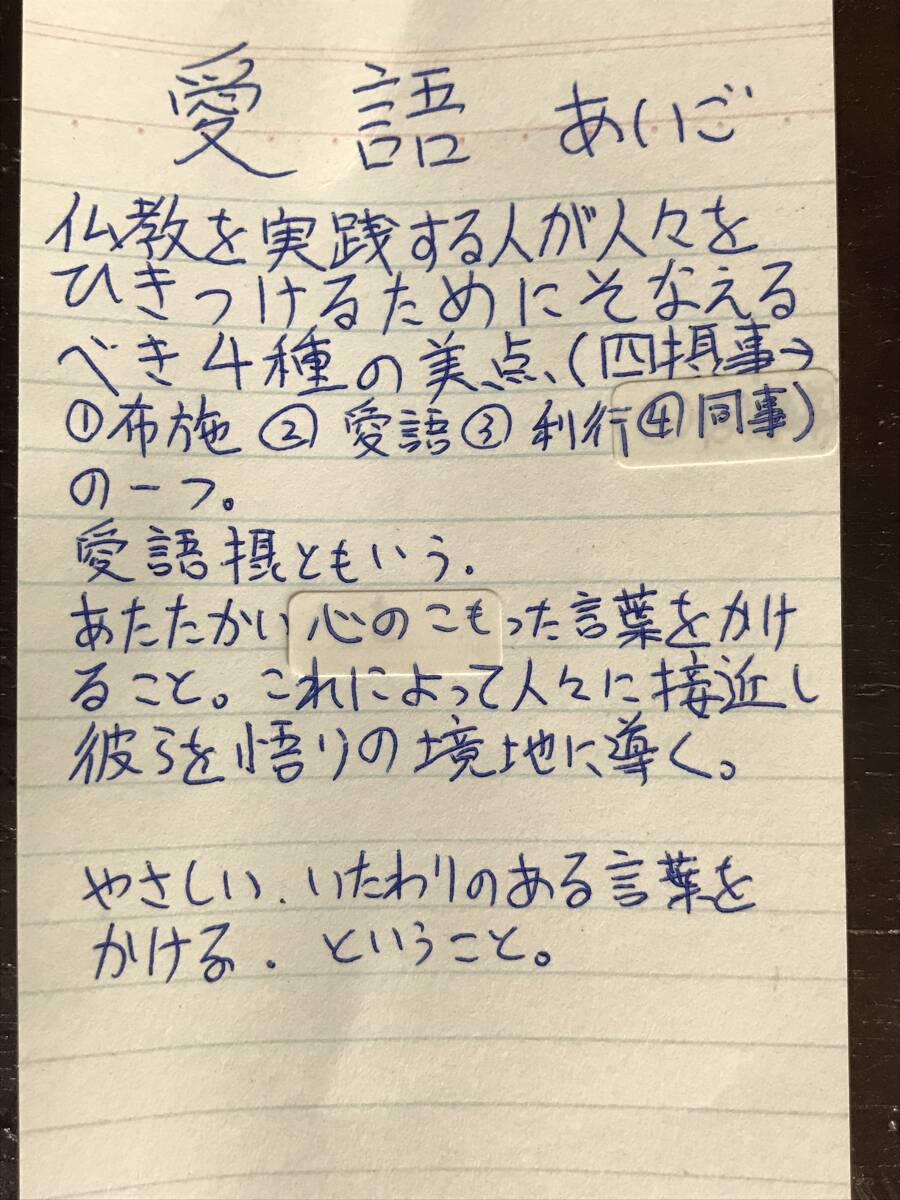 愛語 あいご
仏教を実践する人が人々を
ひきつけるためにそなえる
べき4種の美点、(四摂事→
①布施 ② 愛語 ③ 利行 ④ 同事)
の一つ。
愛語摂ともいう.
あたたかい 心のこもった言葉をかけ
ること。これによって人々に接近し
彼らを悟りの境地に導く。
やさしい、いたわりのある言葉を
かける、ということ。